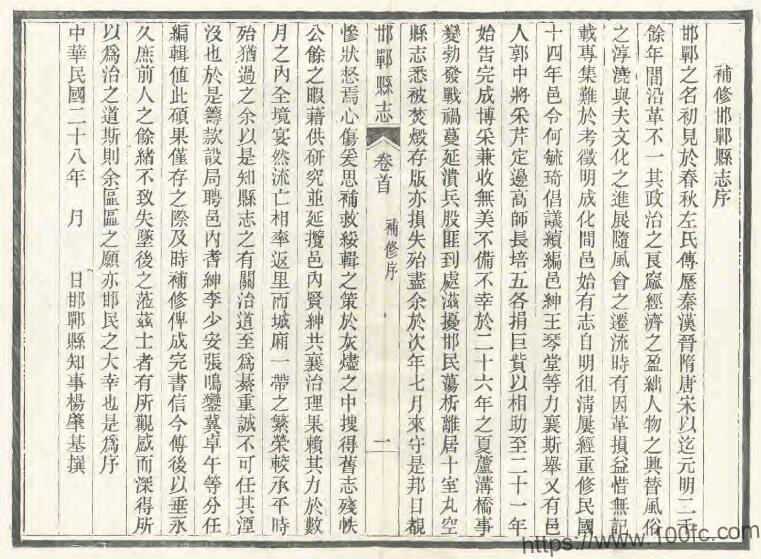 補修邯鄲縣志序
邯鄲之名初見於春秋左氏傳歷秦漢晉隋唐宋以迄元明二千
餘年間沿革不一其政治之良窳經濟之盈絀人物之興替風俗
之淳澆與夫文化之進展隨風會之遷流時有因革損益惜無記
載專集難於考徵明成化間邑始有志自明徂淸展經重修民國
十四年邑令何毓琦倡議續編邑紳王琴堂等力襄斯舉又有邑
人郭中將采芹定邊高師長培五各捐巨貲以相助至二十一年
始告完成博采兼收無美不備不幸於二十六年之夏蘆溝橋事
變勃發戰禍蔓延潰兵股匪到處滋擾邯民蕩析離居十室九空
縣志悉被焚燬存版亦損失殆盡余於次年七月來守是邦日覩
邯鄲縣志 卷首 補修序 二
慘狀愁焉心傷矣思補救綏輯之策於灰燼之中搜得舊志殘帙
公餘之暇藉供研究並延攬邑內賢紳共襄治理果賴其力於數
月之內全境宴然流亡相率返里而城廂一帶之繁榮較承平時
殆猶過之余以是知縣志之有關治道至爲綦重誠不可任其湮
沒也於是籌款設局聘邑內耆紳李少安張鳴鑾冀卓午等分任
編輯值此碩果僅存之際及時補修俾成完書信今傳後以垂永
久庶前人之餘緒不致失墜後之蒞茲土者有所觀感而深得所
以爲治之道斯則余區區之願亦邯民之大幸也是爲序
中華民國二十八年 月 日邯鄲縣知事楊肇基撰
https://www.100fc.com